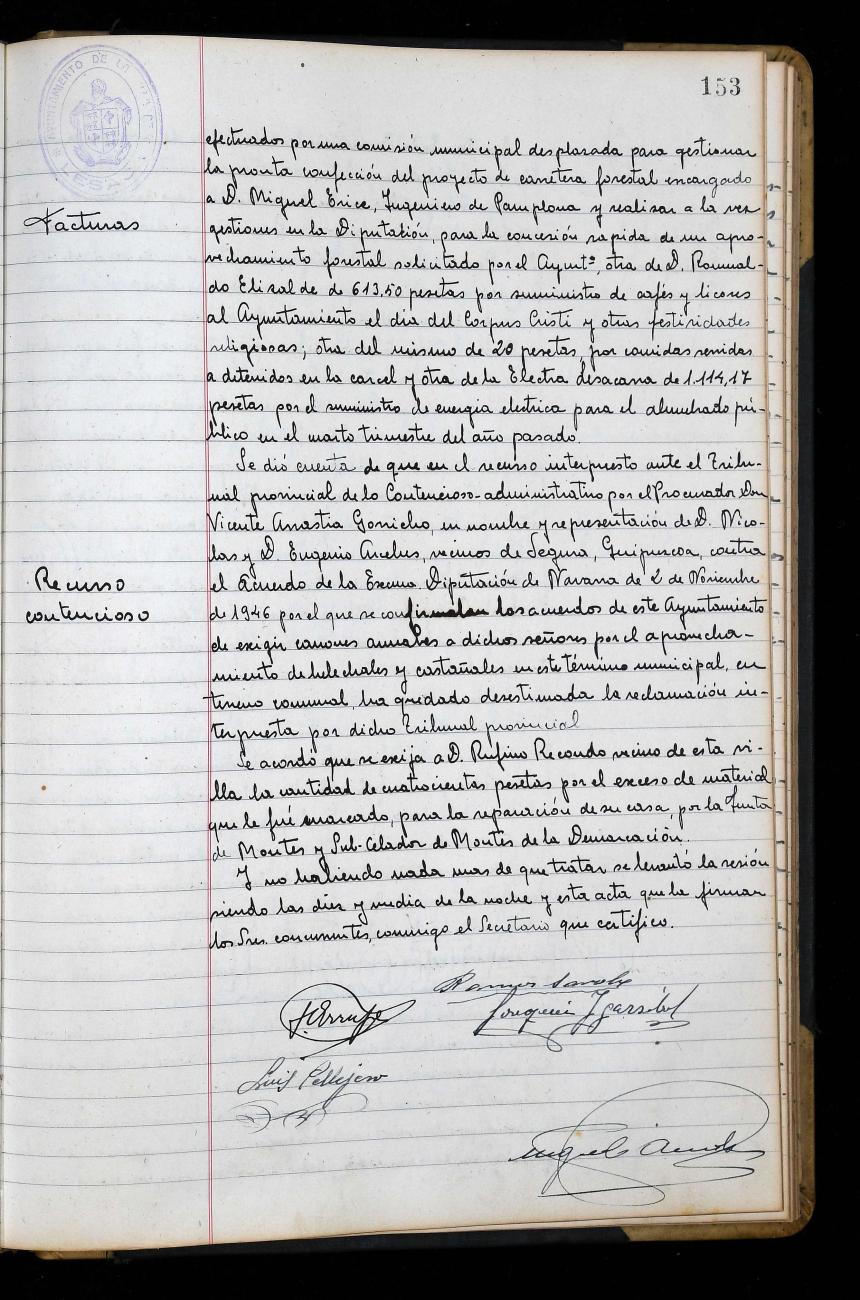 153
AYUNTAMIENTO DE LA
LESACA
efectuados por una comisión municipal desplazada para gestionar
la pronta confección del proyecto de carretera forestal encargado
Facturas
a D. Miguel Erice, Ingeniero de Pamplona y realizar a la vez
gestiones en la Diputación, para la concesión rapida de un apro-
vechamiento forestal solicitado por el Ayuntº, otra de D. Romual-
do Elizalde de 613,50 pesetas por suministro de cafés y licores
al Ayuntamiento el dia del Corpus Cristi y otras festividades
religiosas; otra del mismo de 20 pesetas, por comidas servidas
a detenidos en la carcel y otra de la Electra Lesacana de 1.114,17
pesetas por el suministro de energia electrica para el alumbrado pú-
blico en el cuarto trimestre del año pasado.
Se dió cuenta de que en el recurso interpuesto ante el Tribu-
nal provincial de lo Contencioso-administrativo por el Procurador Don
Vicente Arrastia Gorricho, en nombre y representación de D. Nico-
las y D. Eugenio Arcelus, vecinos de Segura, Guipuzcoa, contra
Recurso
contencioso
el Acuerdo de la Excma Diputación de Navarra de 2 de Noviembre
de 1946 por el que se confirmaban los acuerdos de este Ayuntamiento
de exigir canones anuales a dichos señores por el aprovecha-
miento de helechales y castañales en este término municipal, en
terreno comunal, ha quedado desestimada la reclamación in-
terpuesta por dicho Tribunal provincial
Se acordó que se exija a D. Rufino Recondo vecino de esta vi-
lla la cantidad de cuatrocientas pesetas por el exceso de material
que le fué marcado, para la reparación de su casa, por la Junta
de Montes y Sub-Celador de Montes de la Demarcación.
Y no habiendo nada mas de que tratar se levantó la sesión
siendo las diez y media de la noche y esta acta que la firman
los Sres. concurrentes, conmigo el Secretario que certifico.
Ramon
Joaquin
Luis Pellejero
Miguel